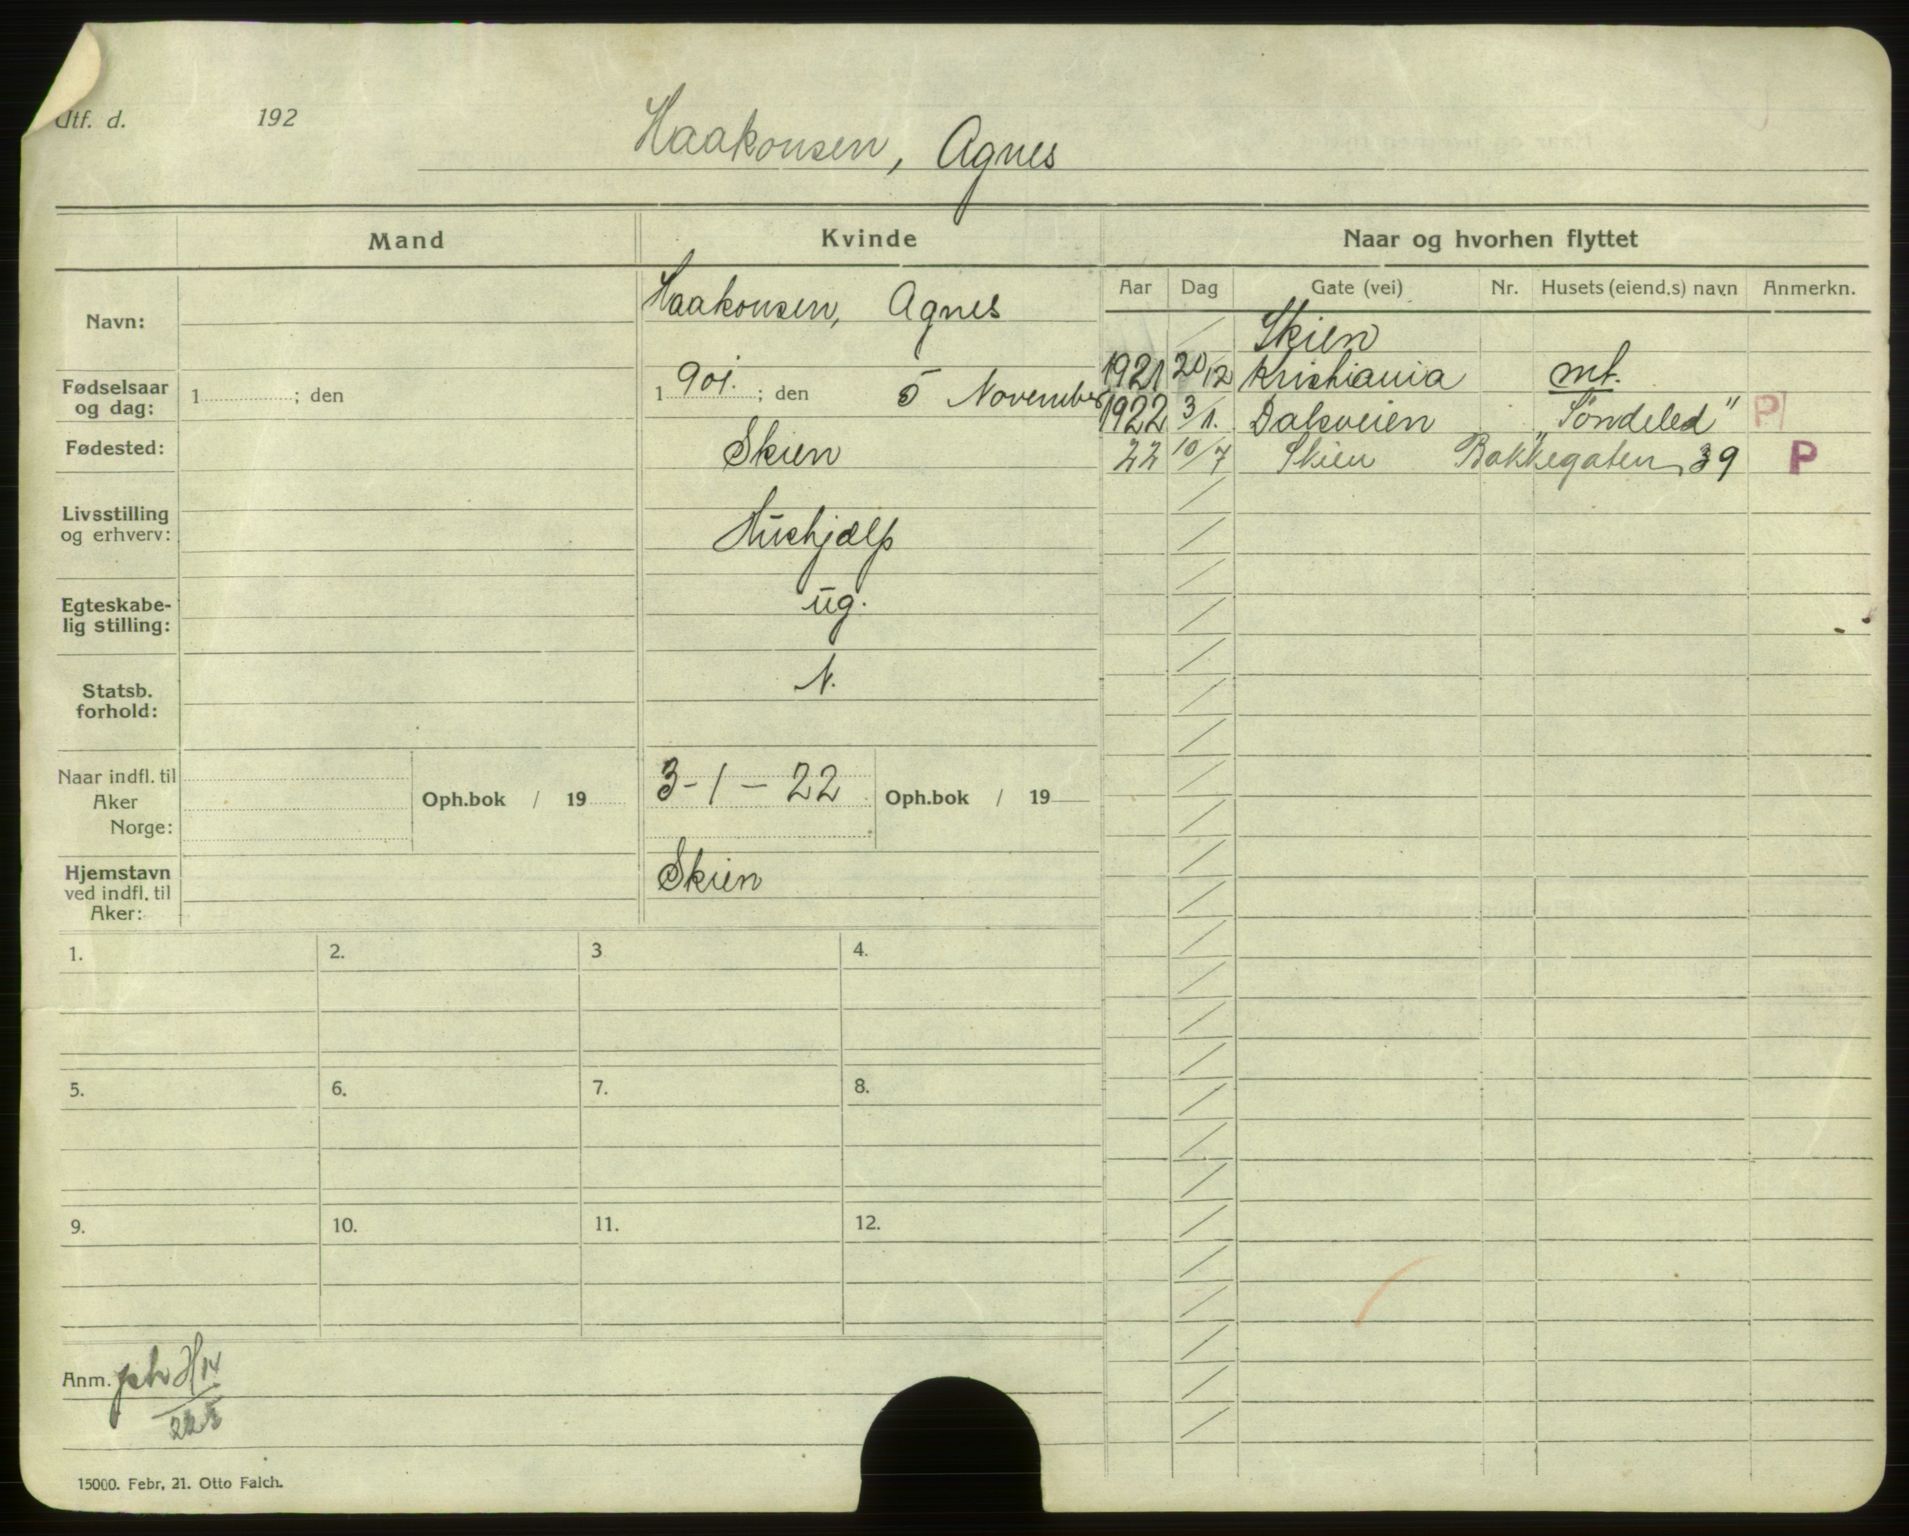 Utf. d. 192
Haakonsen, Agnes
Mand Kvinde Naar og hvorhen flyttet
Aar Dag Gate (vei) Nr. Husets (eiend.s) navn Anmerkn.
Navn: Haakonsen, Agnes
Skien
1921 20/12 Kristiania mt.
Fødselsaar og dag: 1 ; den 1 901. ; den 5 November
1922 3/1. Dalsveien "Søndeled" P
Fødested: Skien
22 10/7 Skien Bakkegaten 39 P
Livsstilling og erhverv: Hushjælp
Egteskabelig stilling: ug.
Statsb. forhold: N.
Naar indfl. til
Aker Oph.bok / 19 3-1-22 Oph.bok / 19
Norge:
Hjemstavn ved indfl. til Aker: Skien
1. 2. 3 4.
5. 6. 7. 8.
9. 10. 11. 12.
Anm.
15000. Febr. 21. Otto Falch.